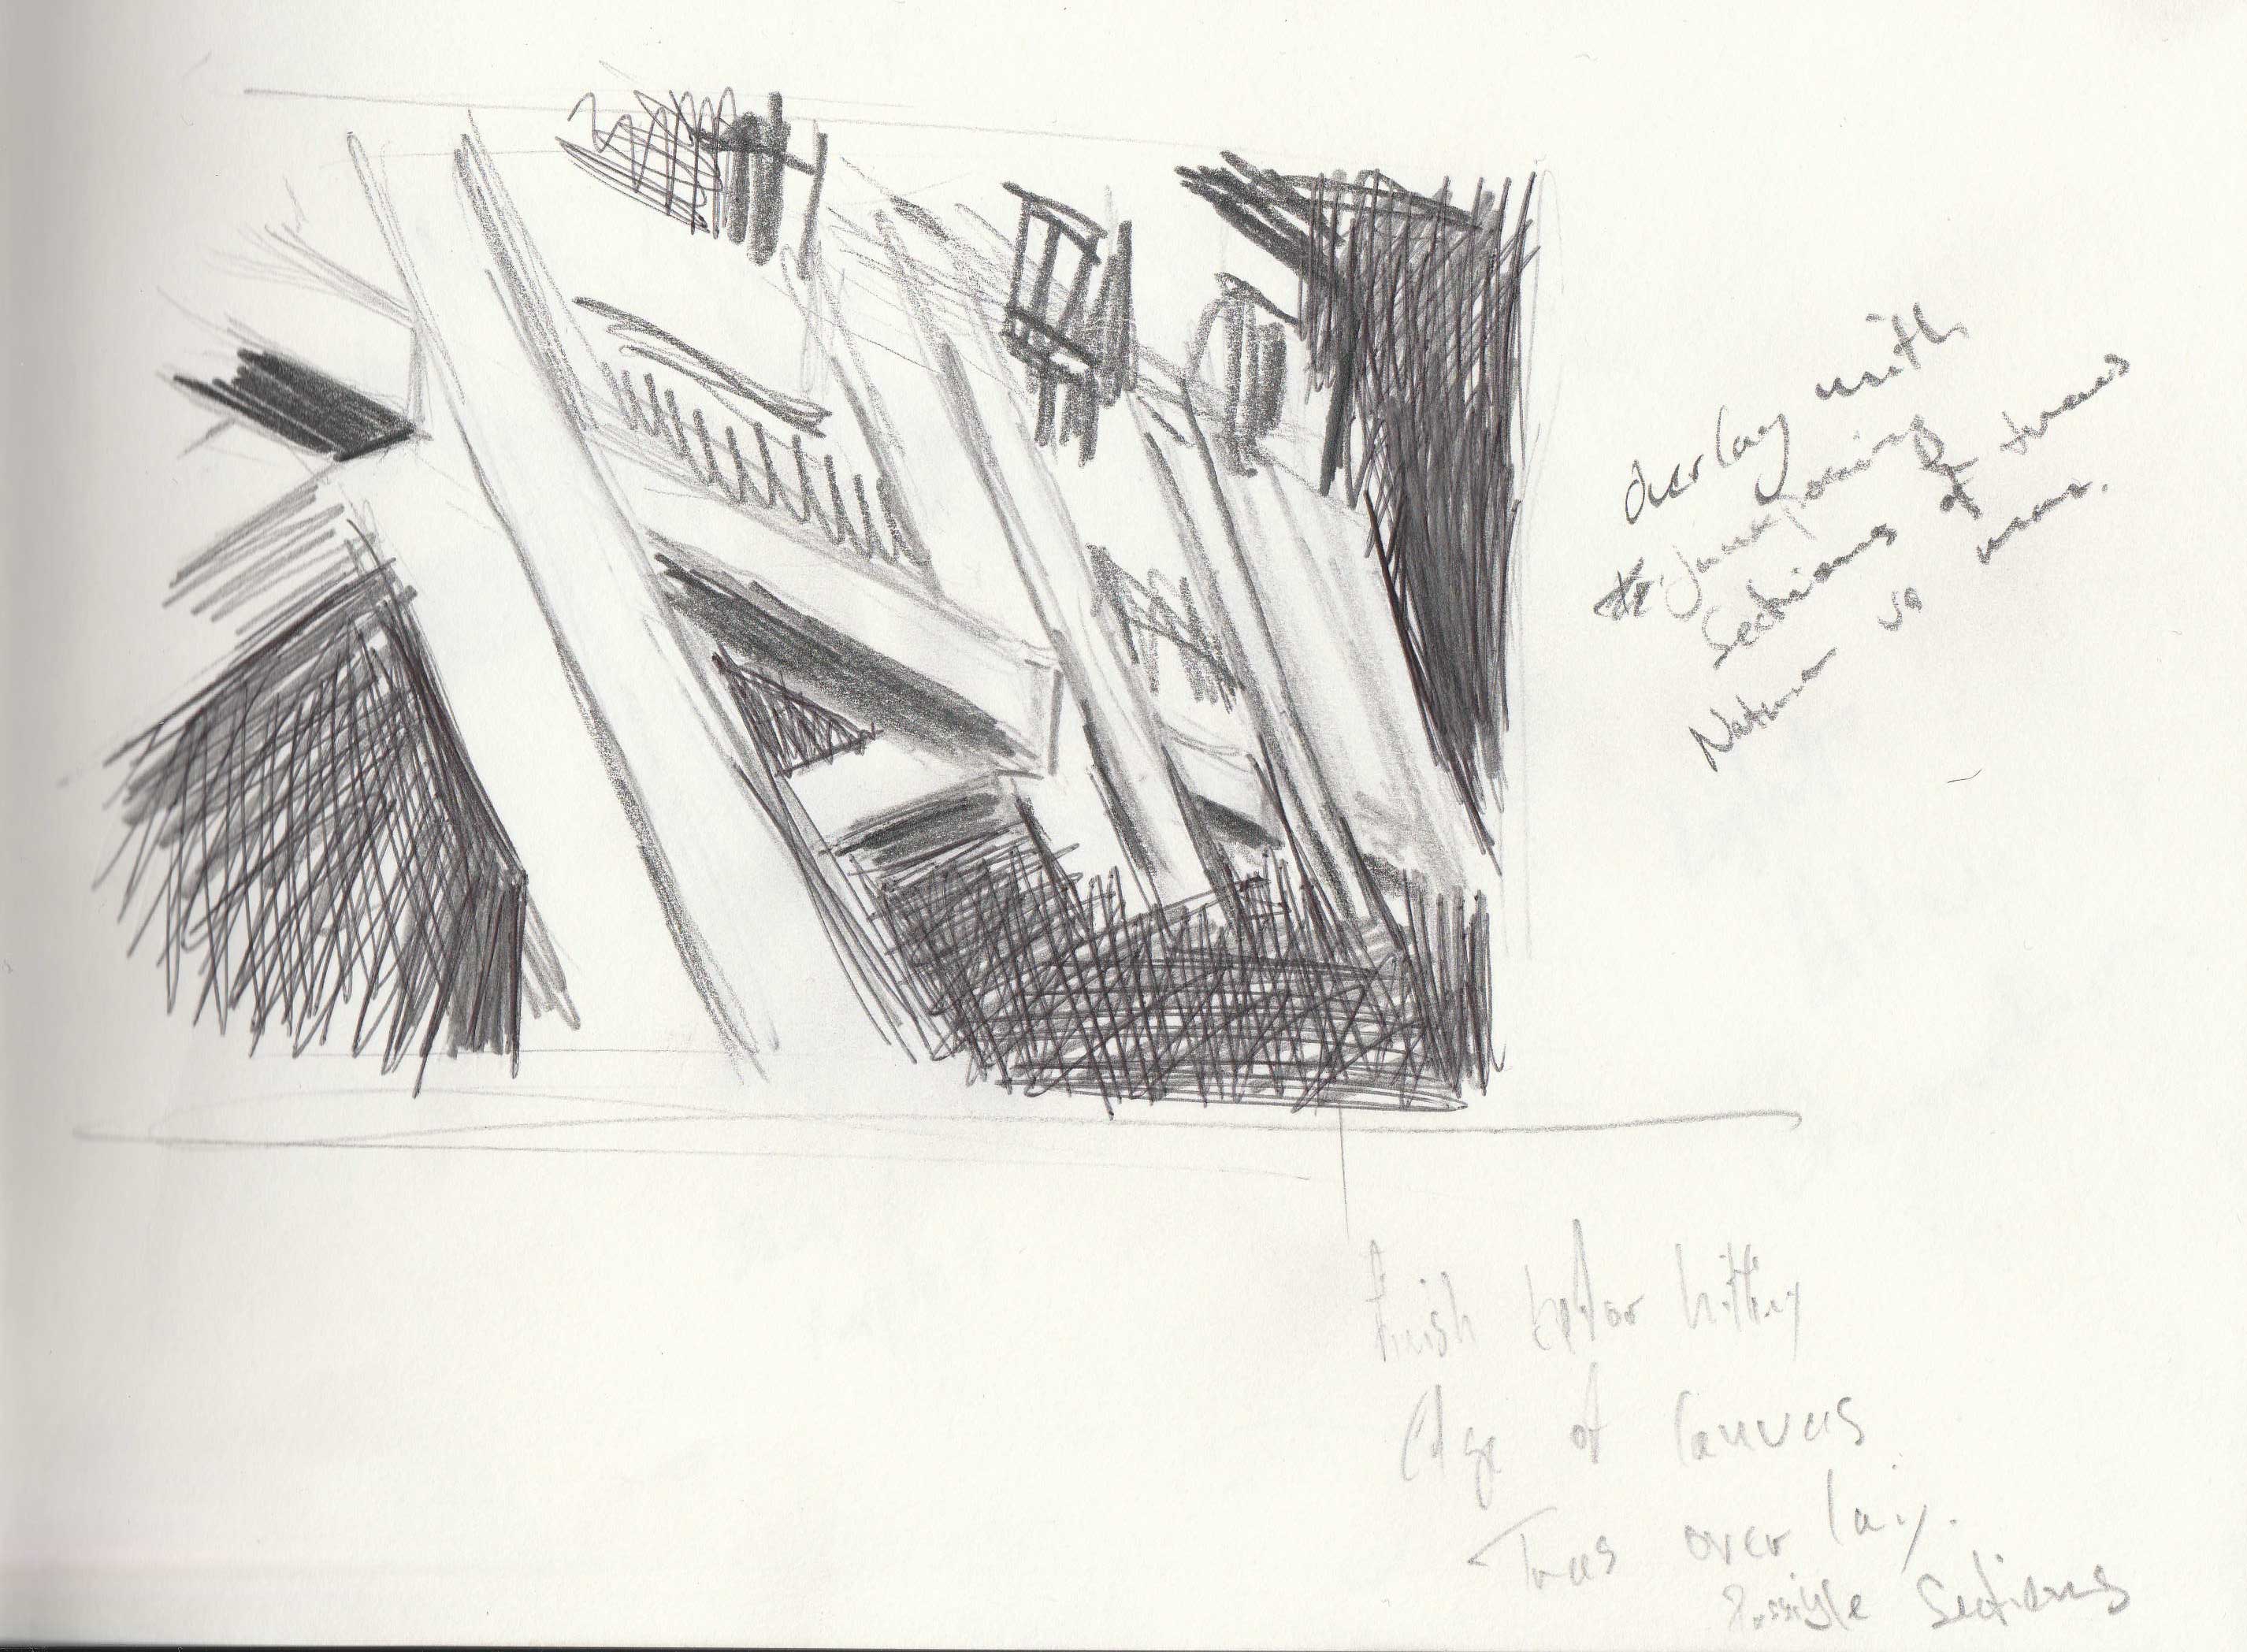 overlay with
juxtaposing
sections of trees
Nature vs man.
finish befor hitting
Edge of Canvas
Trees over lay.
Possible Sections